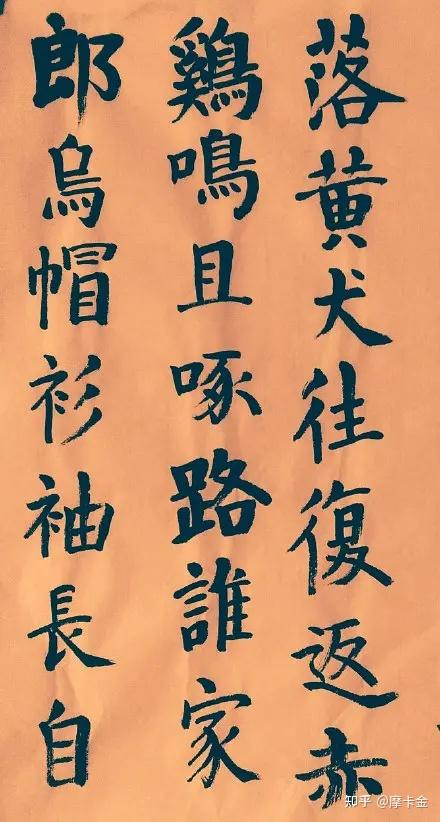 落黄犬往復返赤
鷄鳴且啄路誰家
郎烏帽衫袖長自
知乎 @摩卡金